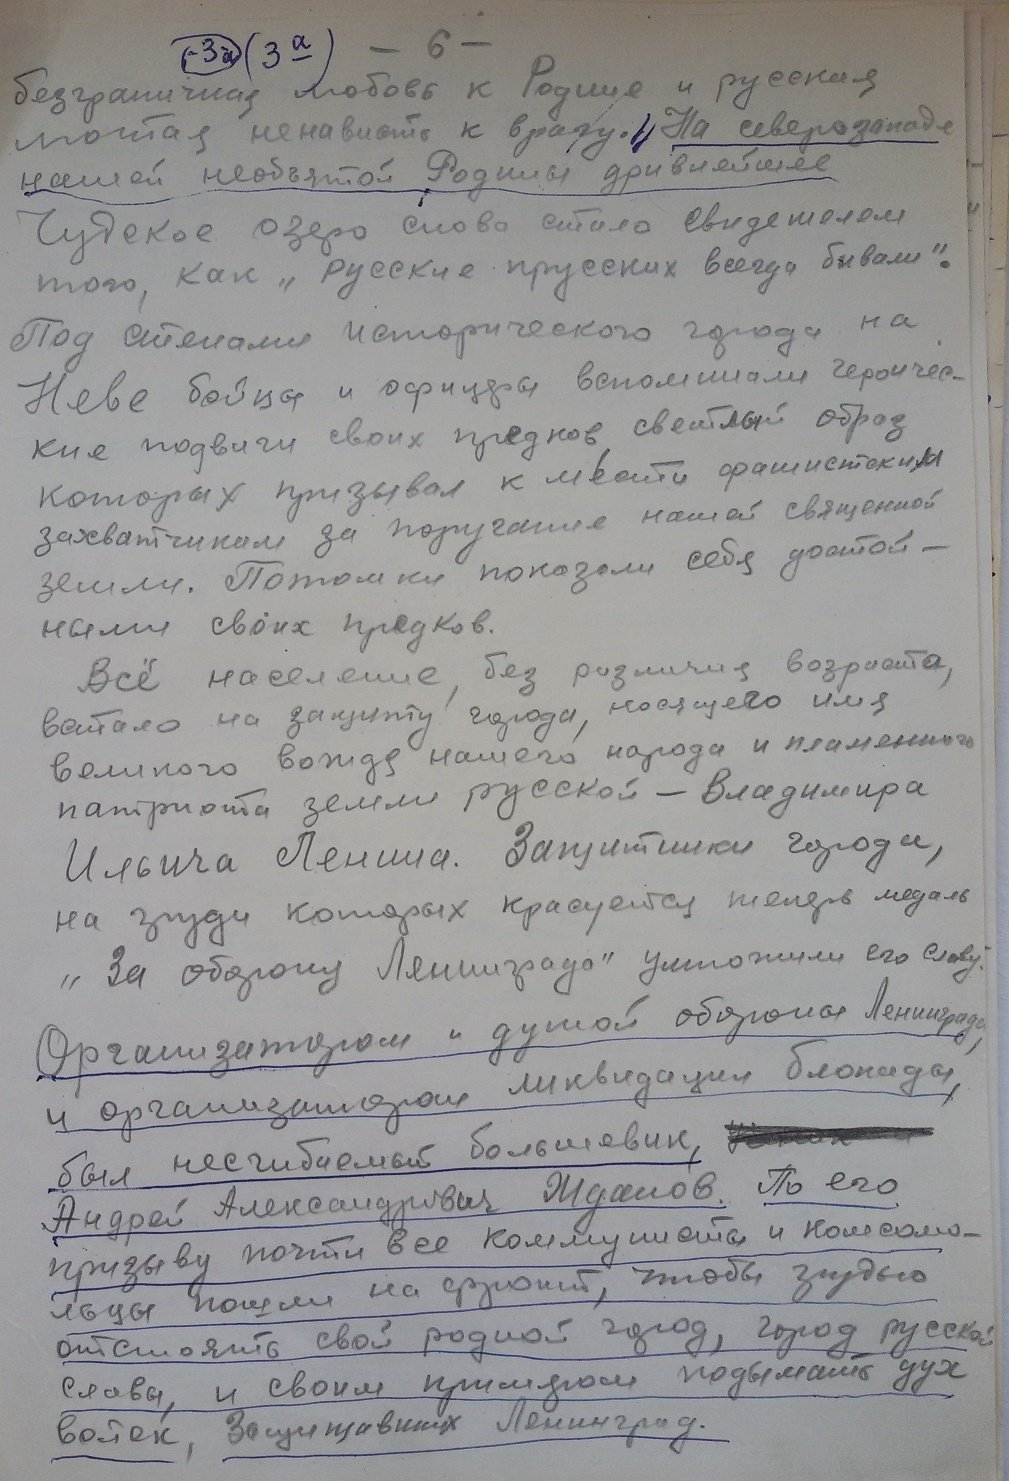 -3а (3а) — 6 —
безграничная любовь к Родине и русская
лютая ненависть к врагу. На северозападе
нашей необъятой Родины древнейшее
Чудское озеро снова стало свидетелем
того, как „русские прусских всегда бивали".
Под стенами исторического города на
Неве бойцы и офицеры вспоминали героичес-
кие подвиги своих предков, светлый образ
которых призывал к мести фашистским
захватчикам за поругание нашей священной
земли. Потомки показали себя достой-
ными своих предков.
Всё население, без различия возраста,
встало на защиту города, носящего имя
великого вождя нашего народа и пламенного
патриота земли русской — Владимира
Ильича Ленина. Защитники города,
на груди которых красуется теперь медаль
„За оборону Ленинграда" умножили его славу.
Организатором и душой обороны Ленинграда,
и организатором ликвидации блокады,
был несгибаемый большевик,
Андрей Александрович Жданов. По его
призыву почти все коммунисты и комсомо-
льцы пошли на фронт, чтобы грудью
отстоять свой родной город, город русской
славы, и своим примером подымать дух
войск, защищавших Ленинград.